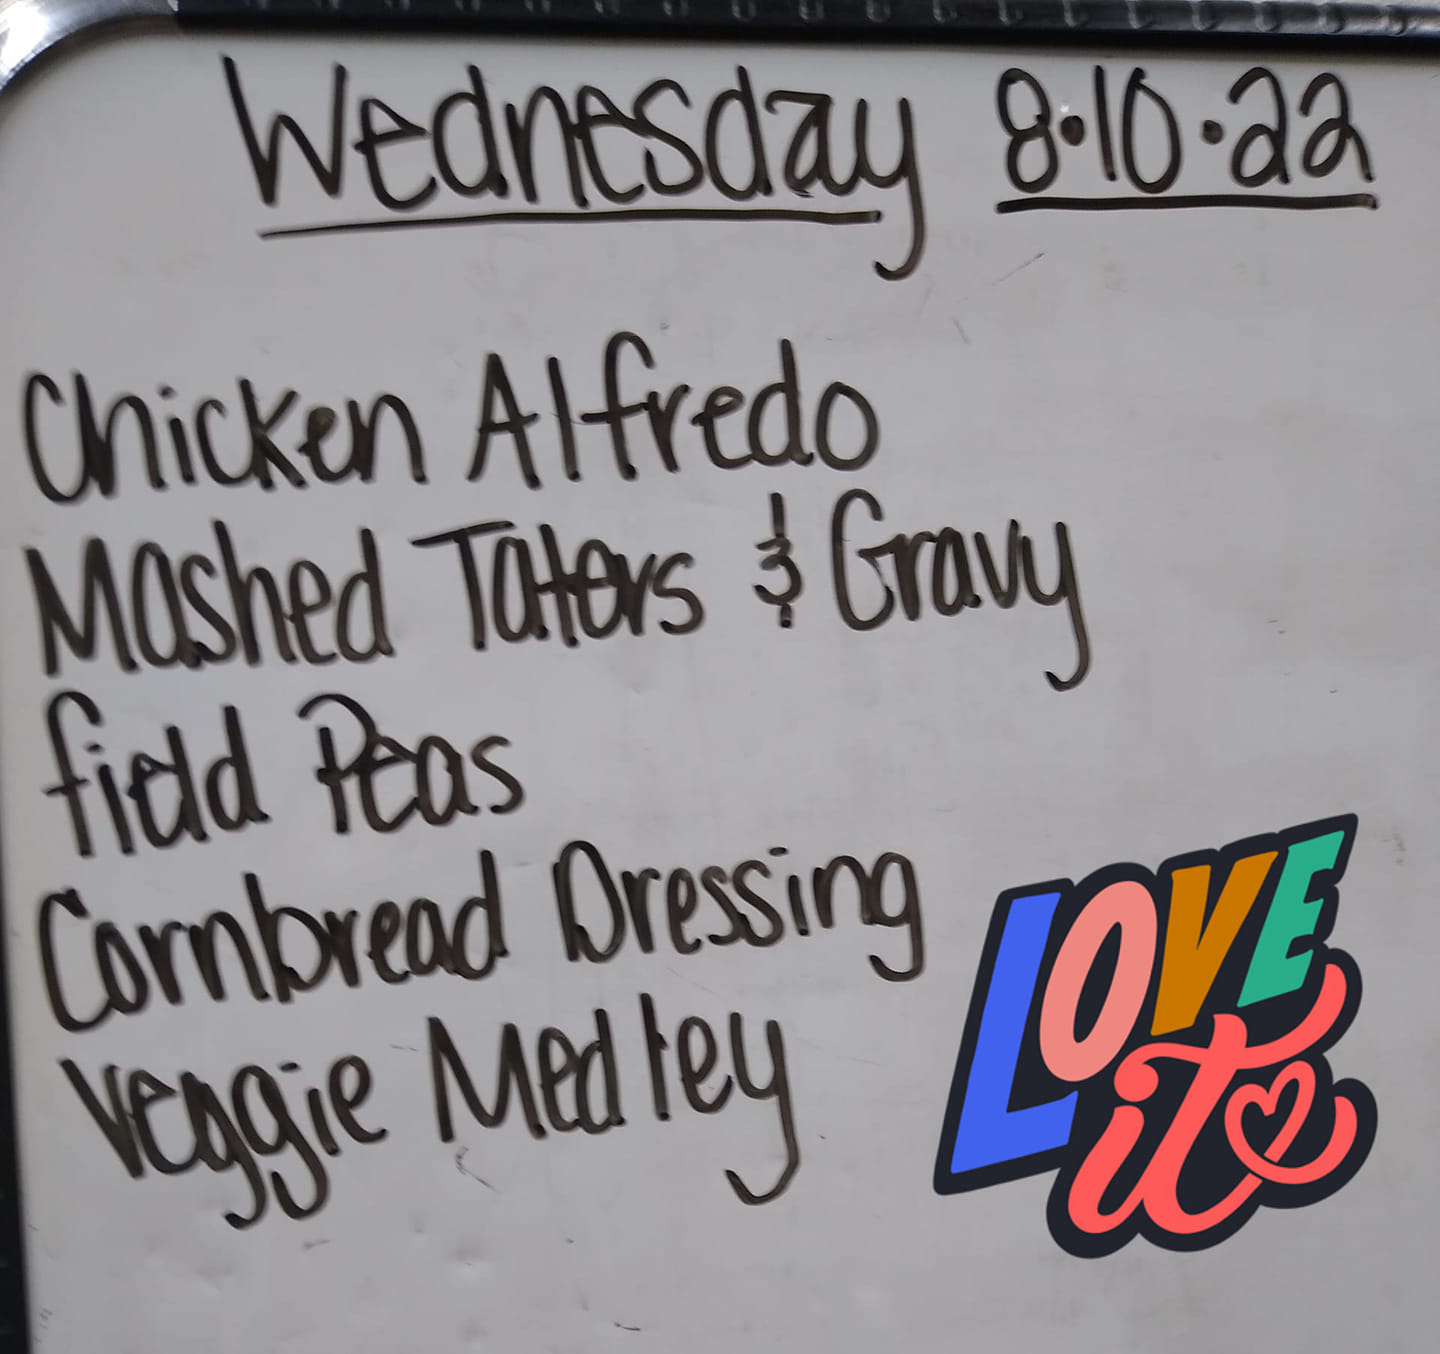 Wednesday 8.10.22
Chicken Alfredo
Mashed Taters & Gravy
field Peas
Cornbread Dressing
Veggie Medley
LOVE
it